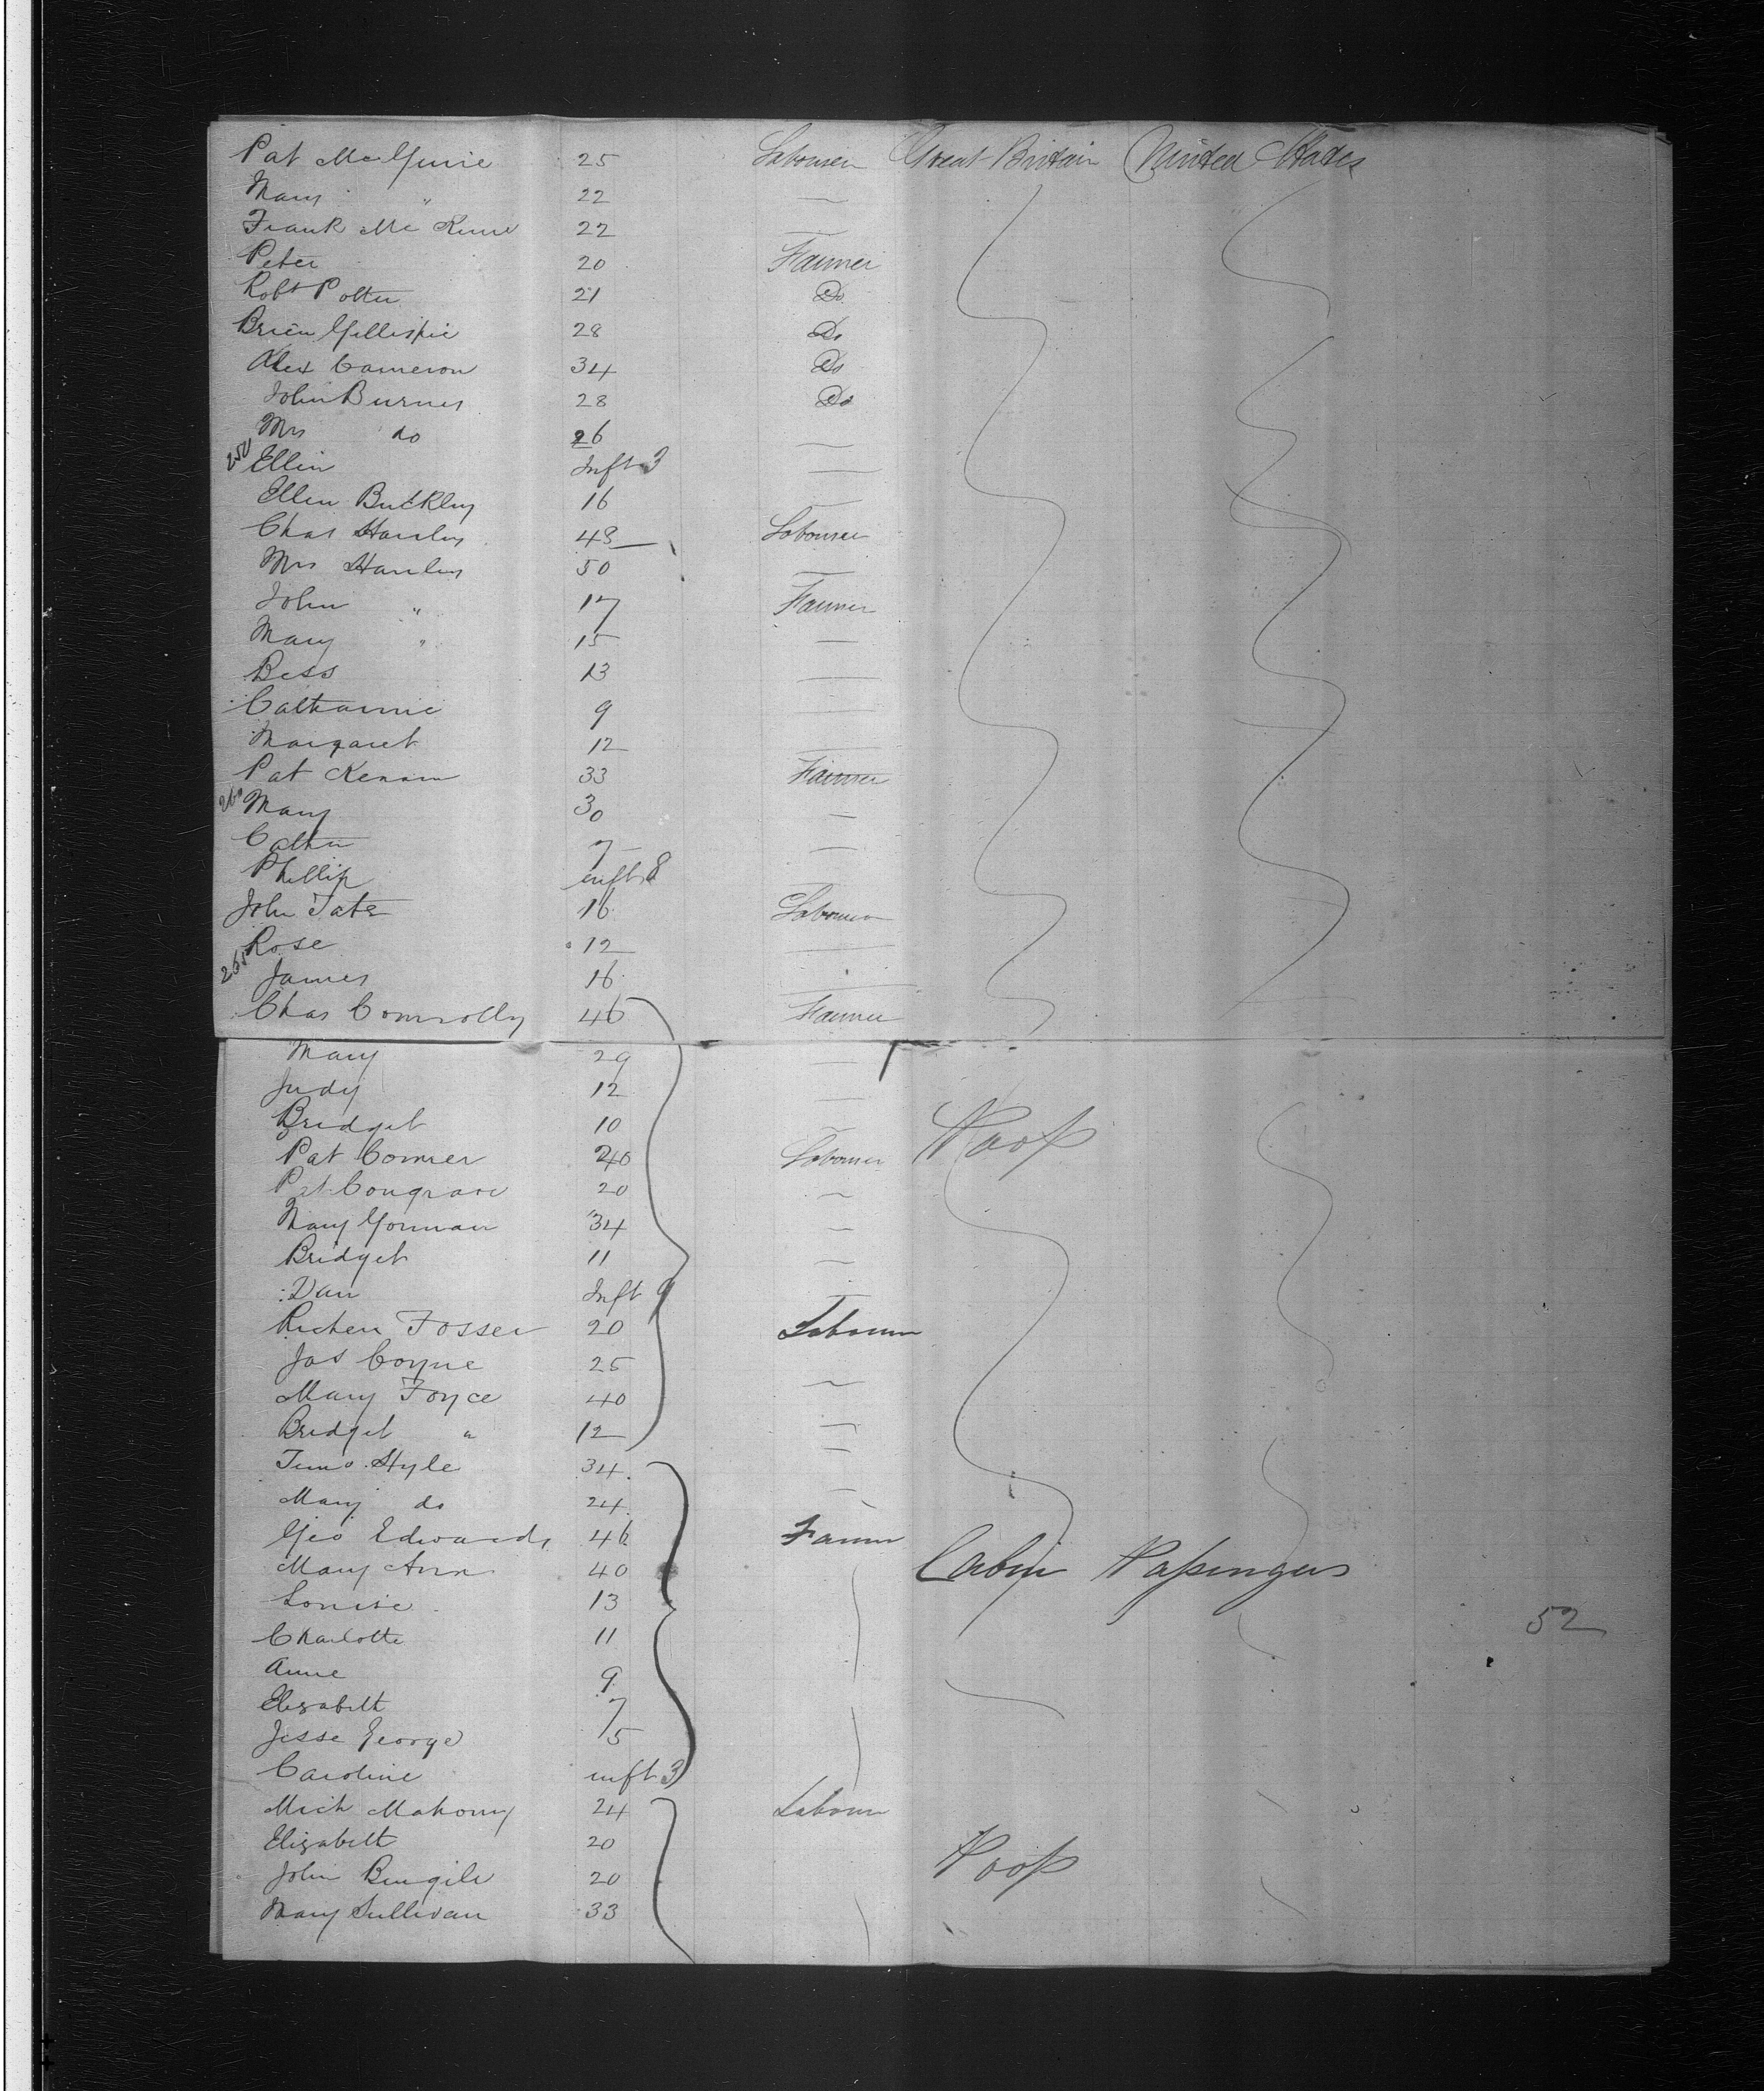 Pat McGuire 25 Labourer Great Britain United States
Mary " 22 —
Frank Mc Kune 22 —
Peter 20 Farmer
Robt Potter 21 Do
Brien Gillispie 28 Do
Alex Cameron 34 Do
John Burnes 28 Do
Mrs do 26 —
250 Ellin Inft 3 —
Ellen Buckley 16 —
Chas Hanley 48 Labourer
Mrs Hanley 50 —
John " 17 Farmer
Mary " 15 —
Bess 13 —
Catharine 9 —
Margaret 12 —
Pat Kenam 33 Farmer
260 Mary 30 —
Cathn 7 —
Phillip inft 8 —
John Tate 16 Labourer
Rose 12 —
265 James 16 —
Chas Connolly 46 Farmer
Mary 29 —
Judy 12 —
Bridget 10 —
Pat Conner 20 Labourer Poop
Pat Congrave 20 —
Mary Gorman 34 —
Bridget 11 —
Dan Inft 9 —
Fosser 20 Labourer
Jas Coyne 25
Mary Foyce 40 —
Bridget " 12 —
Timo. Hyle 34 —
Mary do 24 —
Geo Edwards 46 Farmer
Mary Ann 40 Cabin Passengers
Louise 13
52
Charlotte 11
Anne 9
Elizabeth 7
Jesse George 5
Caroline inft 3
Mich Mahony 24 Labourer
Elizabeth 20 Poop
John 20
Mary Sullivan 33